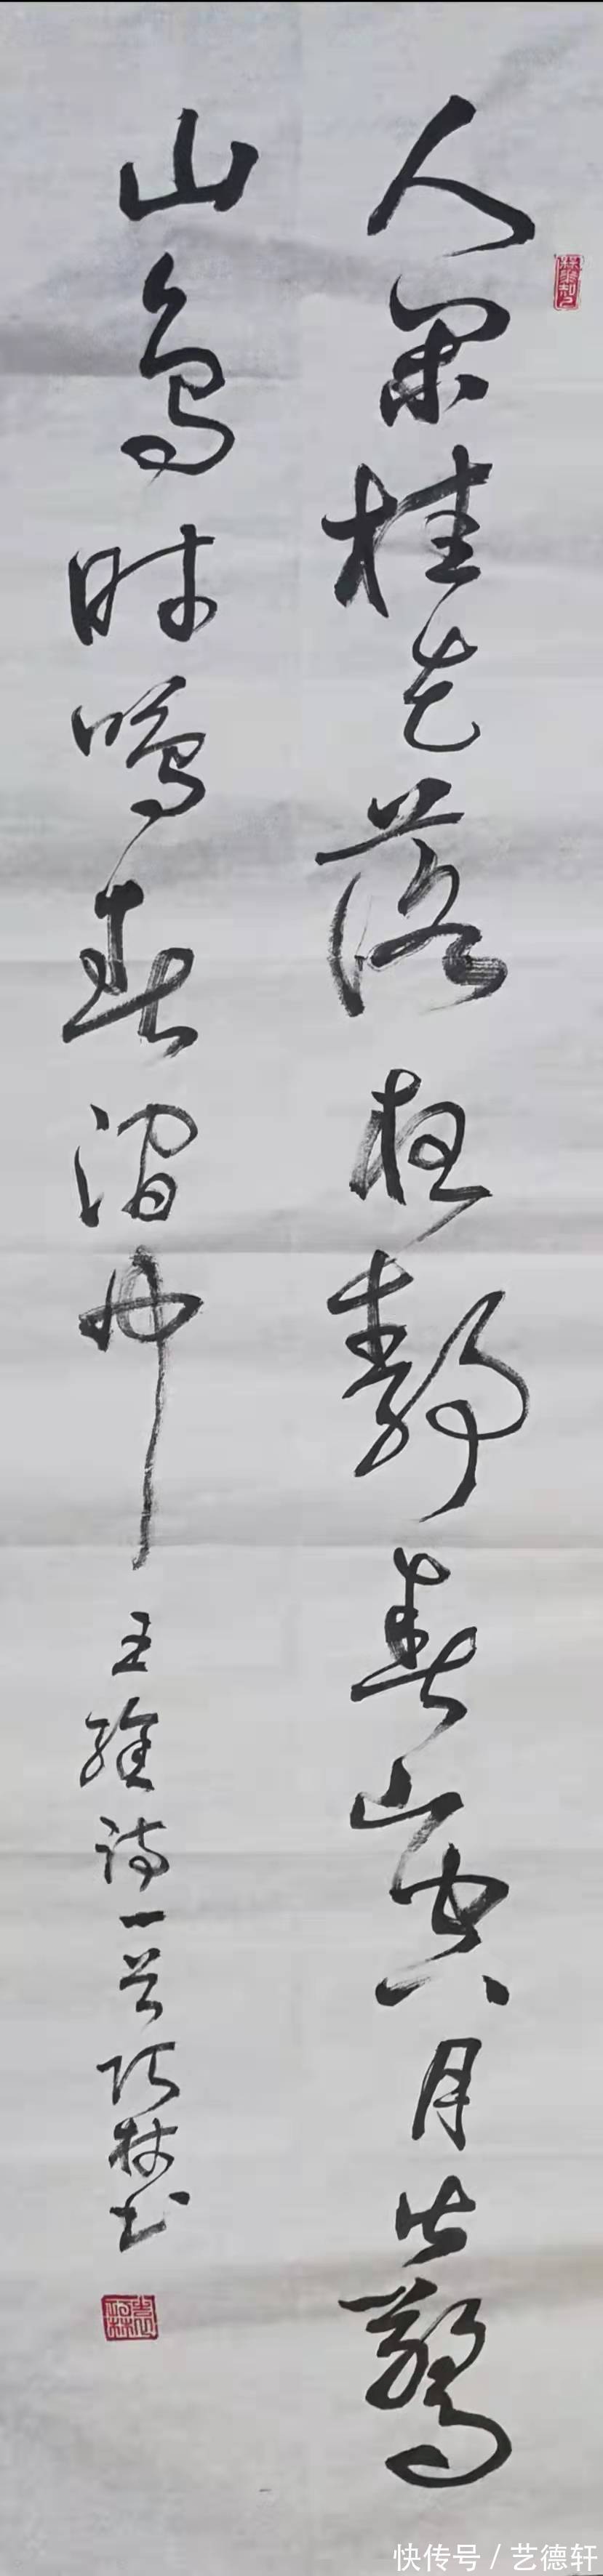 人闲桂花落夜静春山空月出驚
山鸟时鸣春涧中
王维诗一首阿林书
快传号 / 艺德轩